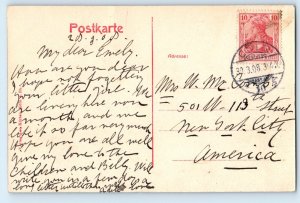 Postkarte
28.3.08
My dear Emely.
How are you dear
I hope not forgotten
your little girl. We
are living here now
a month and we
like it so far very much
Hope you are all well
give my love to the
Children and Billy. Will
write you in a few days a
long letter
Love
Adresse:
10 10
30 3.08. 3-4
Mrs W. Mc
501 W. 113 Street
New York City
America